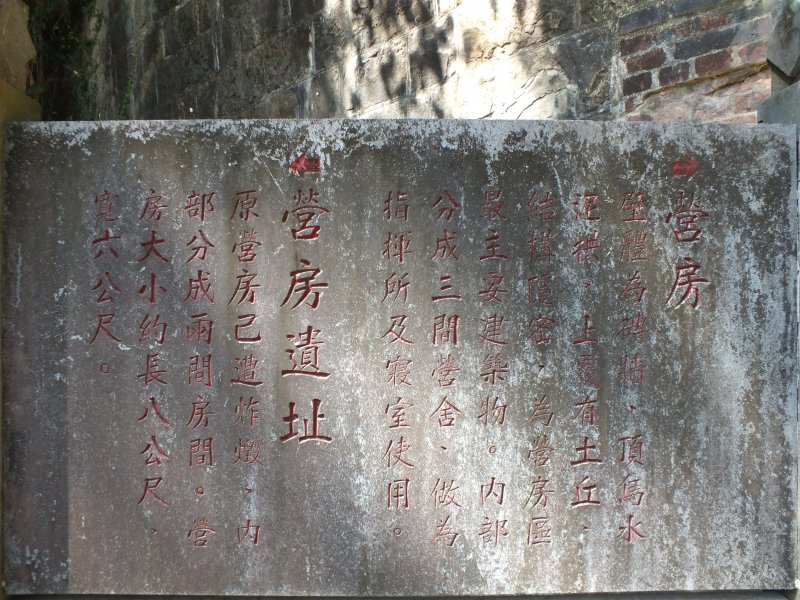 營房
壁體為磚牆、頂為水
泥拱，上覆有土丘，
結構隱密，為營房區
最主要建築物。內部
分成三間營舍、做為
指揮所及寢室使用。
營房遺址
原營房已遭炸燬、內
部分成兩間房間。營
房大小約長八公尺、
寬六公尺。